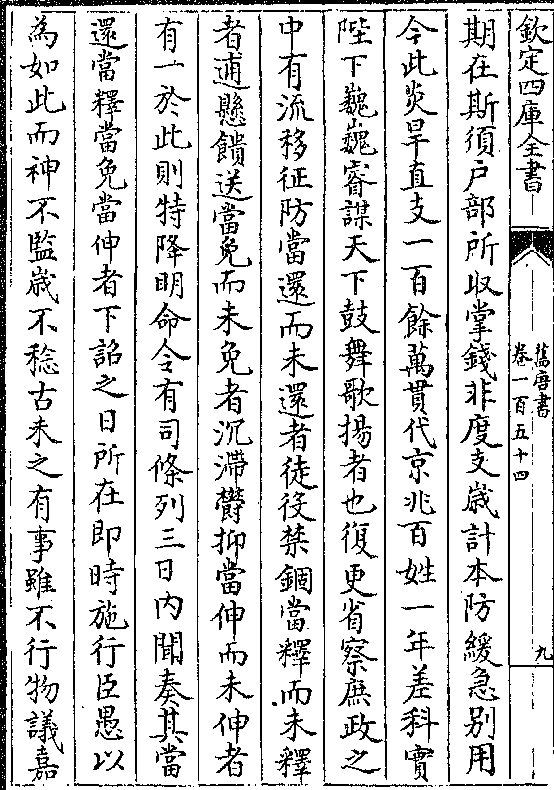 欽定四庫全書
舊唐書
卷一百五十四
九
期在斯須户部所収掌錢非度支嵗計本防緩急别用
今此炎旱直支一百餘萬貫代京兆百姓一年差科實
陛下巍巍睿謀天下鼓舞歌揚者也復更省察庶政之
中有流移征防當還而未還者徒役禁錮當釋而未釋
者逋懸饋送當免而未免者沉滯鬱抑當伸而未伸者
有一於此則特降明命令有司條列三日内聞奏其當
還當釋當免當伸者下詔之日所在即時施行臣愚以
為如此而神不監嵗不稔古未之有事雖不行物議嘉